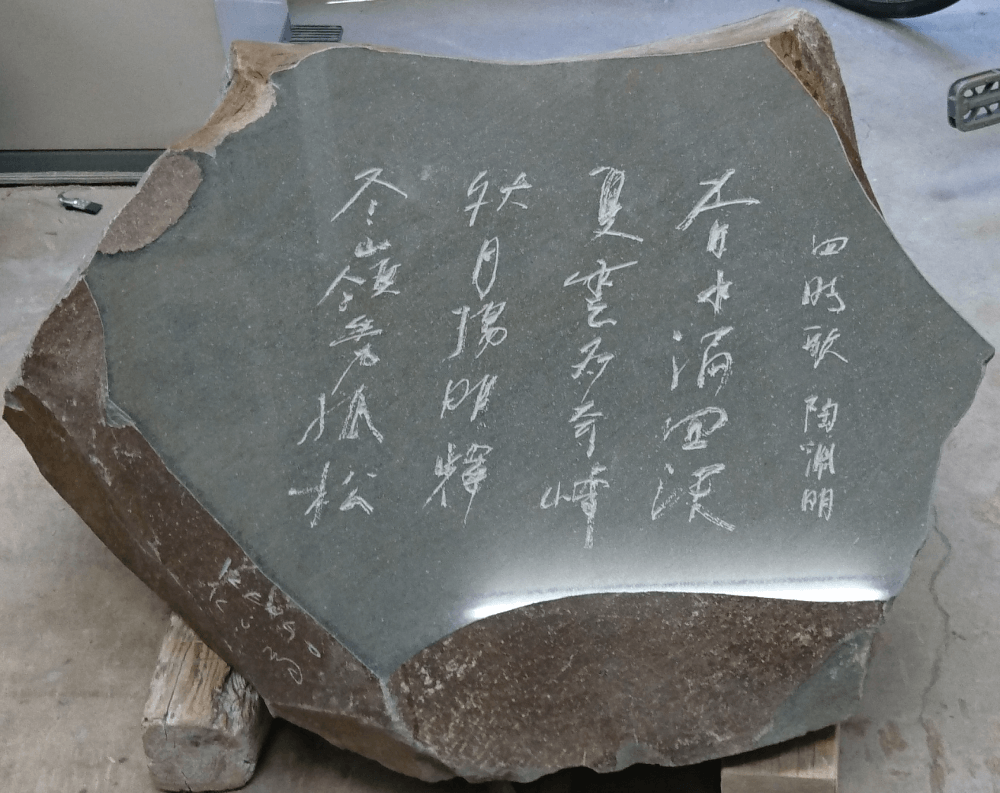 四時歌 陶淵明
春水満四澤
夏雲多奇峰
秋月揚明輝
冬嶺秀孤松